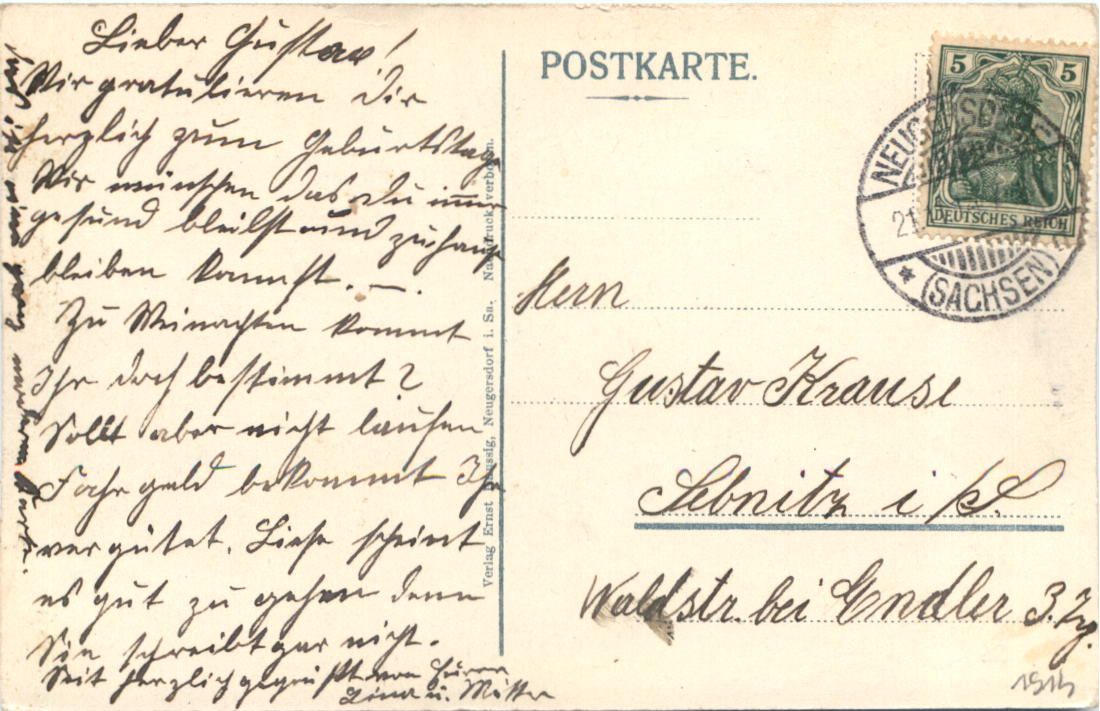 Lieber Gustav!
Wir gratulieren Dir
herzlich zum Geburtstage
Wir wünschen das Du immer
gesund bleibst und zuhause
bleiben kannst. —.
Zu Weinachten kommt
Ihr doch bestimmt?
Sollt aber nicht laufen
Fahrgeld bekommt Ihr
vergütet. Liese scheint
es gut zu gehen denn
Sie schreibt gar nicht.
Seit herzlich gegrüßt von Eurer
Lina u. Mutter
eine ganz Karte.
Verlag Ernst Neugersdorf i. Sa. Nachdruck verboten.
POSTKARTE.
5 5
DEUTSCHES REICH
NEUGERSDORF
21.
* (SACHSEN)
Hern
Gustav Krause
Sebnitz i/S.
Waldstr. bei Endler 3.